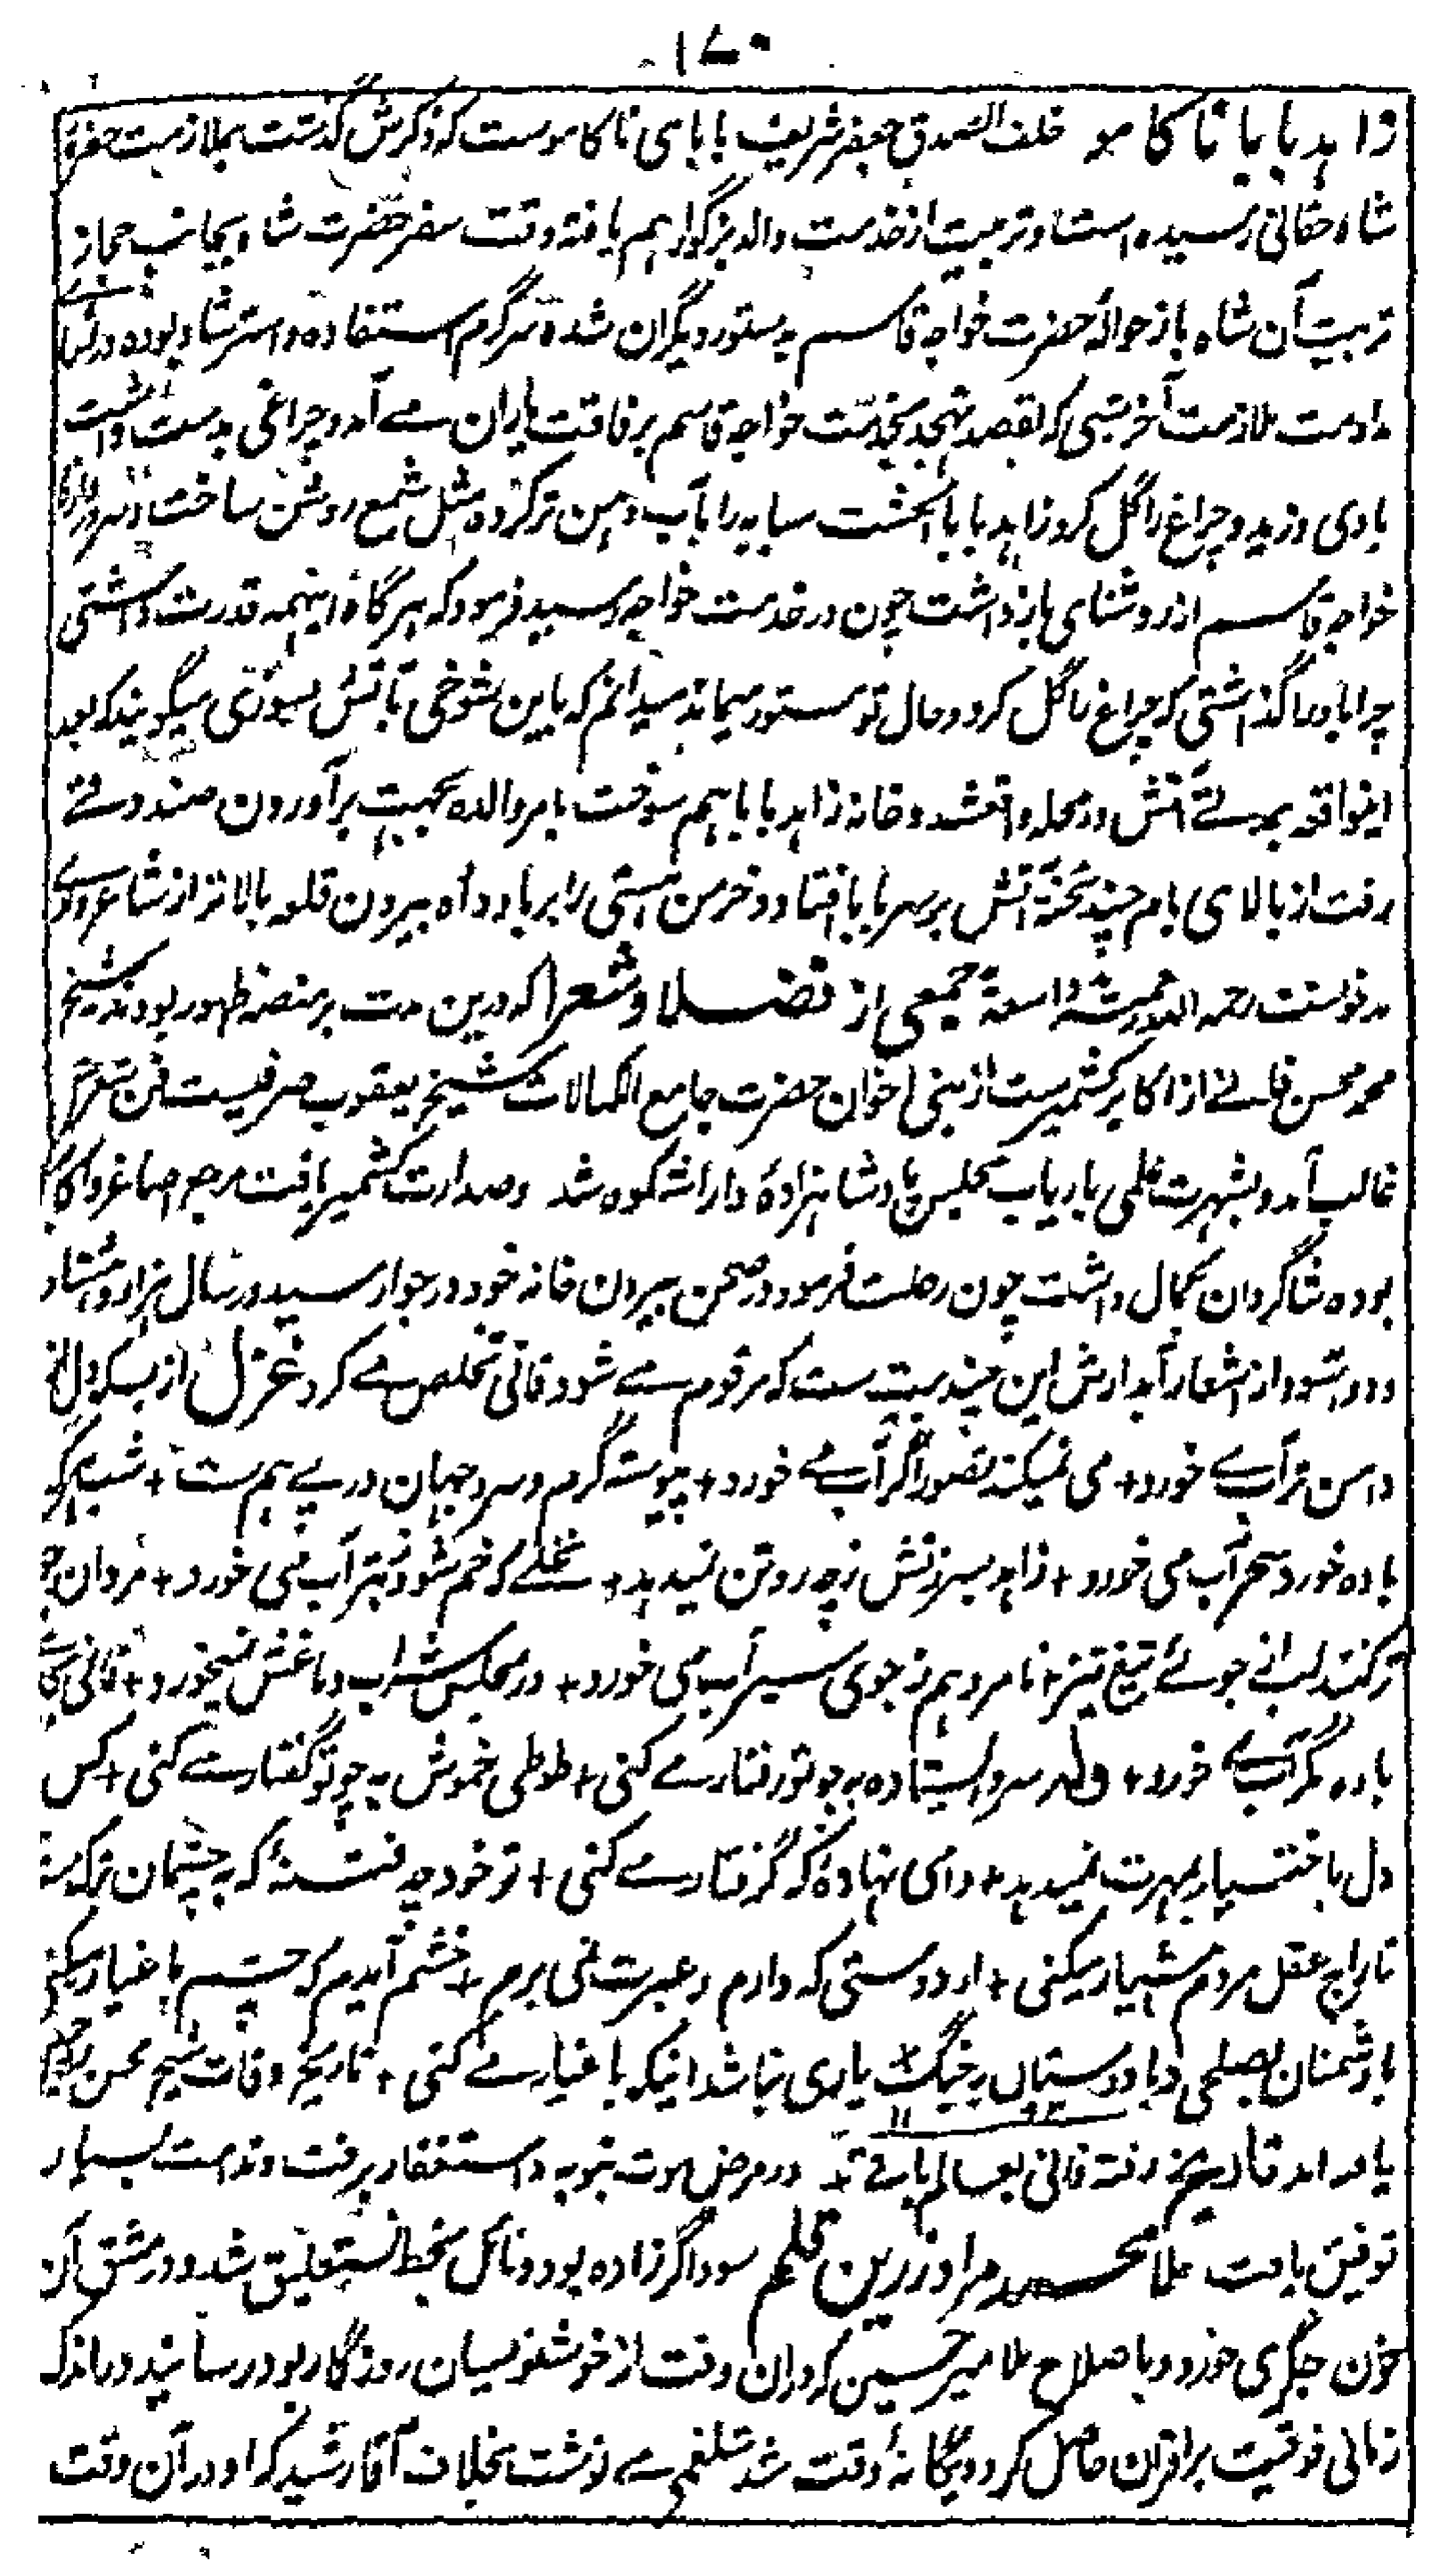 ۱۷۰
زاهد بابا ناکامو خلف الصدق جعفر شریف بابای ناکاموست که ذکرش گذشت بملازمت حضرت
شاه حقانی رسیده است و تربیت از خدمت والد بزرگوار هم یافته وقت سفر حضرت شاه بجانب حجاز
تربیت آن شاه باز حوالهٔ حضرت خواجه قاسم بدستور دیگران شده سرگرم استفاده و استرشاد بوده در
مداومت ملازمت آخر شبی که بقصد تهجد بخدمت خواجه قاسم برفاقت یاران می آمد و چراغی بدست داشت
بادی وزید و چراغ را گل کرد زاهد بابا انگشت سبابه را بآب دهن تر کرده مثل شمع روشن ساخت
خواجه قاسم از روشنای باز داشت چون در خدمت خواجه رسید فرمود که هرگاه اینهمه قدرت داشتی
چرا باد را گذاشتی که چراغ را گل کرد و حال تو مستور میماند میدانم که باین شوخی بآتش بسوزی میگویند که بعد
اینواقعه بمدتے آتش در محله واقعشد و خانه زاهد بابا هم سوخت بامر والده بجهت برآوردن صندوقے
رفت از بالای بام چند تختهٔ آتش بر سر بابا افتاد و خرمن هستی را بر باد داد بیرون قلعه بالاتر از شاعرواری
مدفونست رحمه الله رحمة واسعة جمعی از فضلا و شعرا که درین مدت بر منصه ظهور بودند شیخ
محمد محسن فانے از اکابر کشمیرست از بنی اخوان حضرت جامع الکمالات شیخ یعقوب صرفیست فن شعرش
غالب آمد و بشهرت علمی باریاب مجلس پادشاهزادهٔ داراشکوه شد و صدارت کشمیر یافت مرجع اصاغر و اکابر
بوده شاگردان بکمال داشت چون رحلت فرمود در صحن بیرون خانه خود در جوار سید در سال هزار و هشتاد
و دو آسود از اشعار آبدارش این چند بیت ست که مرقوم مے شود فانی تخلص مے کرد غزل از بسکه دل ز
دامن تر آب مے خورد + می نمیکند تصور اگر آب مے خورد + پیوسته گرم و سرد جهان در پے هم ست + شب هرکه
باده خورد سحر آب می خورد + زاهد بسرزنش زچه رو تن نمیدهد + نخلے که خم شود تبر آب می خورد + مردان چو
تر کنند لب از جوئے تیغ تیز + نامرد هم ز جوی سپر آب می خورد + در مجلس شراب دماغش نمیخورد + فانی بجای
باده مگر آب مے خورد + وله سرو ایستاده به چو تو رفتار مے کنی + طوطی خموش به چو تو گفتار مے کنی + کس
دل باختیار بمهرت نمیدهد + دامی نهادهٔ که گرفتار مے کنی + تو خود چه فتنهٔ که به چشمان ترک مست
تاراج عقل مردم هشیار میکنی + از دوستی که دارم و غیرت که می برم + خشم آیدم که چشم باغیار میکنی
با دشمنان بصلحی و با دوستان بجنگ یاری نباشد اینکه باغیار مے کنی + تاریخ وفات شیخ محسن
یافته اند تاریخ رفته فانی بعالم باقے در مرض موت بتوبه و استغفار پرفت و ندامت بسیار
توفیق یافت ملا محمد مراد زرین قلم سوداگرزاده بود و مائل بخط نستعلیق شد و در مشق آن
خون جگری خورد و باصلاح ملا میر حسین که دران وقت از خوشنویسان روزگار بود رسانید در اندک
زمانی فوقیت بر اقران حاصل کرد و یگانهٔ وقت شد شلغمی مے نوشت بخلاف آقا رشید که او در آن وقت